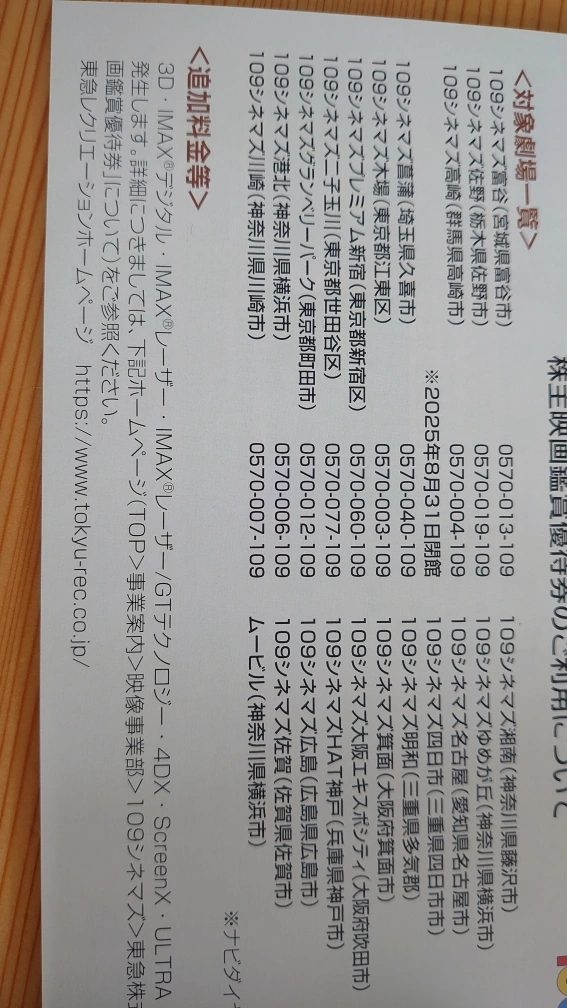 株主映画鑑賞優待券のご利用について
<対象劇場一覧>
109シネマズ富谷(宮城県富谷市) 0570-013-109 109シネマズ湘南(神奈川県藤沢市)
109シネマズ佐野(栃木県佐野市) 0570-019-109 109シネマズゆめが丘(神奈川県横浜市)
109シネマズ高崎(群馬県高崎市) 0570-004-109 109シネマズ名古屋(愛知県名古屋市)
※2025年8月31日閉館 109シネマズ四日市(三重県四日市市)
109シネマズ菖蒲(埼玉県久喜市) 0570-040-109 109シネマズ明和(三重県多気郡)
109シネマズ木場(東京都江東区) 0570-003-109 109シネマズ箕面(大阪府箕面市)
109シネマズプレミアム新宿(東京都新宿区) 0570-060-109 109シネマズ大阪エキスポシティ(大阪府吹田市)
109シネマズ二子玉川(東京都世田谷区) 0570-077-109 109シネマズHAT神戸(兵庫県神戸市)
109シネマズグランベリーパーク(東京都町田市) 0570-012-109 109シネマズ広島(広島県広島市)
109シネマズ港北(神奈川県横浜市) 0570-006-109 109シネマズ佐賀(佐賀県佐賀市)
109シネマズ川崎(神奈川県川崎市) 0570-007-109 ムービル(神奈川県横浜市)
※ナビダイ
<追加料金等>
3D・IMAX®デジタル・IMAX®レーザー・IMAX®レーザー/GTテクノロジー・4DX・ScreenX・ULTRA
発生します。詳細につきましては、下記ホームページ(TOP>事業案内>映像事業部>109シネマズ>東急株
画鑑賞優待券」について)をご参照ください。
東急レクリエーションホームページ https://www.tokyu-rec.co.jp/